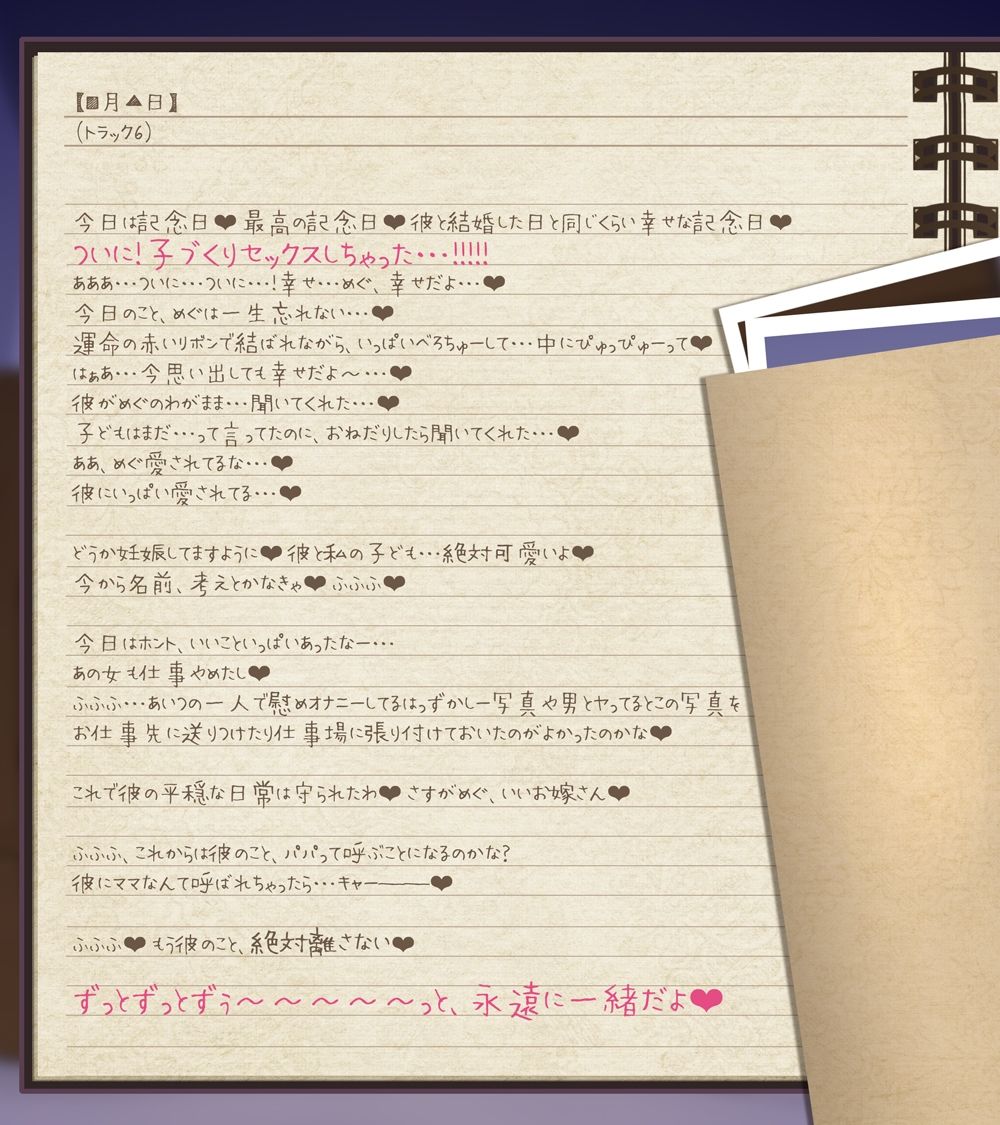 【■月▲日】
（トラック6）
今日は記念日❤最高の記念日❤彼と結婚した日と同じくらい幸せな記念日❤
ついに！子づくりセックスしちゃった・・・!!!!!
あああ・・・ついに・・・ついに・・・！幸せ・・・めぐ、幸せだよ・・・❤
今日のこと、めぐは一生忘れない・・・❤
運命の赤いリボンで結ばれながら、いっぱいべろちゅーして・・・中にぴゅっぴゅーって❤
はぁあ・・・今思い出しても幸せだよ～・・・❤
彼がめぐのわがまま・・・聞いてくれた・・・❤
子どもはまだ・・・って言ってたのに、おねだりしたら聞いてくれた・・・❤
ああ、めぐ愛されてるな・・・❤
彼にいっぱい愛されてる・・・❤
どうか妊娠してますように❤彼と私の子ども・・・絶対可愛いよ❤
今から名前、考えとかなきゃ❤ふふふ❤
今日はホント、いいこといっぱいあったなー・・・
あの女も仕事やめたし❤
ふふふ・・・あいつの一人で慰めオナニーしてるはっずかしー写真や男とヤってるとこの写真を
お仕事先に送りつけたり仕事場に張り付けておいたのがよかったのかな❤
これで彼の平穏な日常は守られたわ❤さすがめぐ、いいお嫁さん❤
ふふふ、これからは彼のこと、パパって呼ぶことになるのかな？
彼にママなんて呼ばれちゃったら・・・キャー――――❤
ふふふ❤もう彼のこと、絶対離さない❤
ずっとずっとずぅ～～～～～っと、永遠に一緒だよ❤